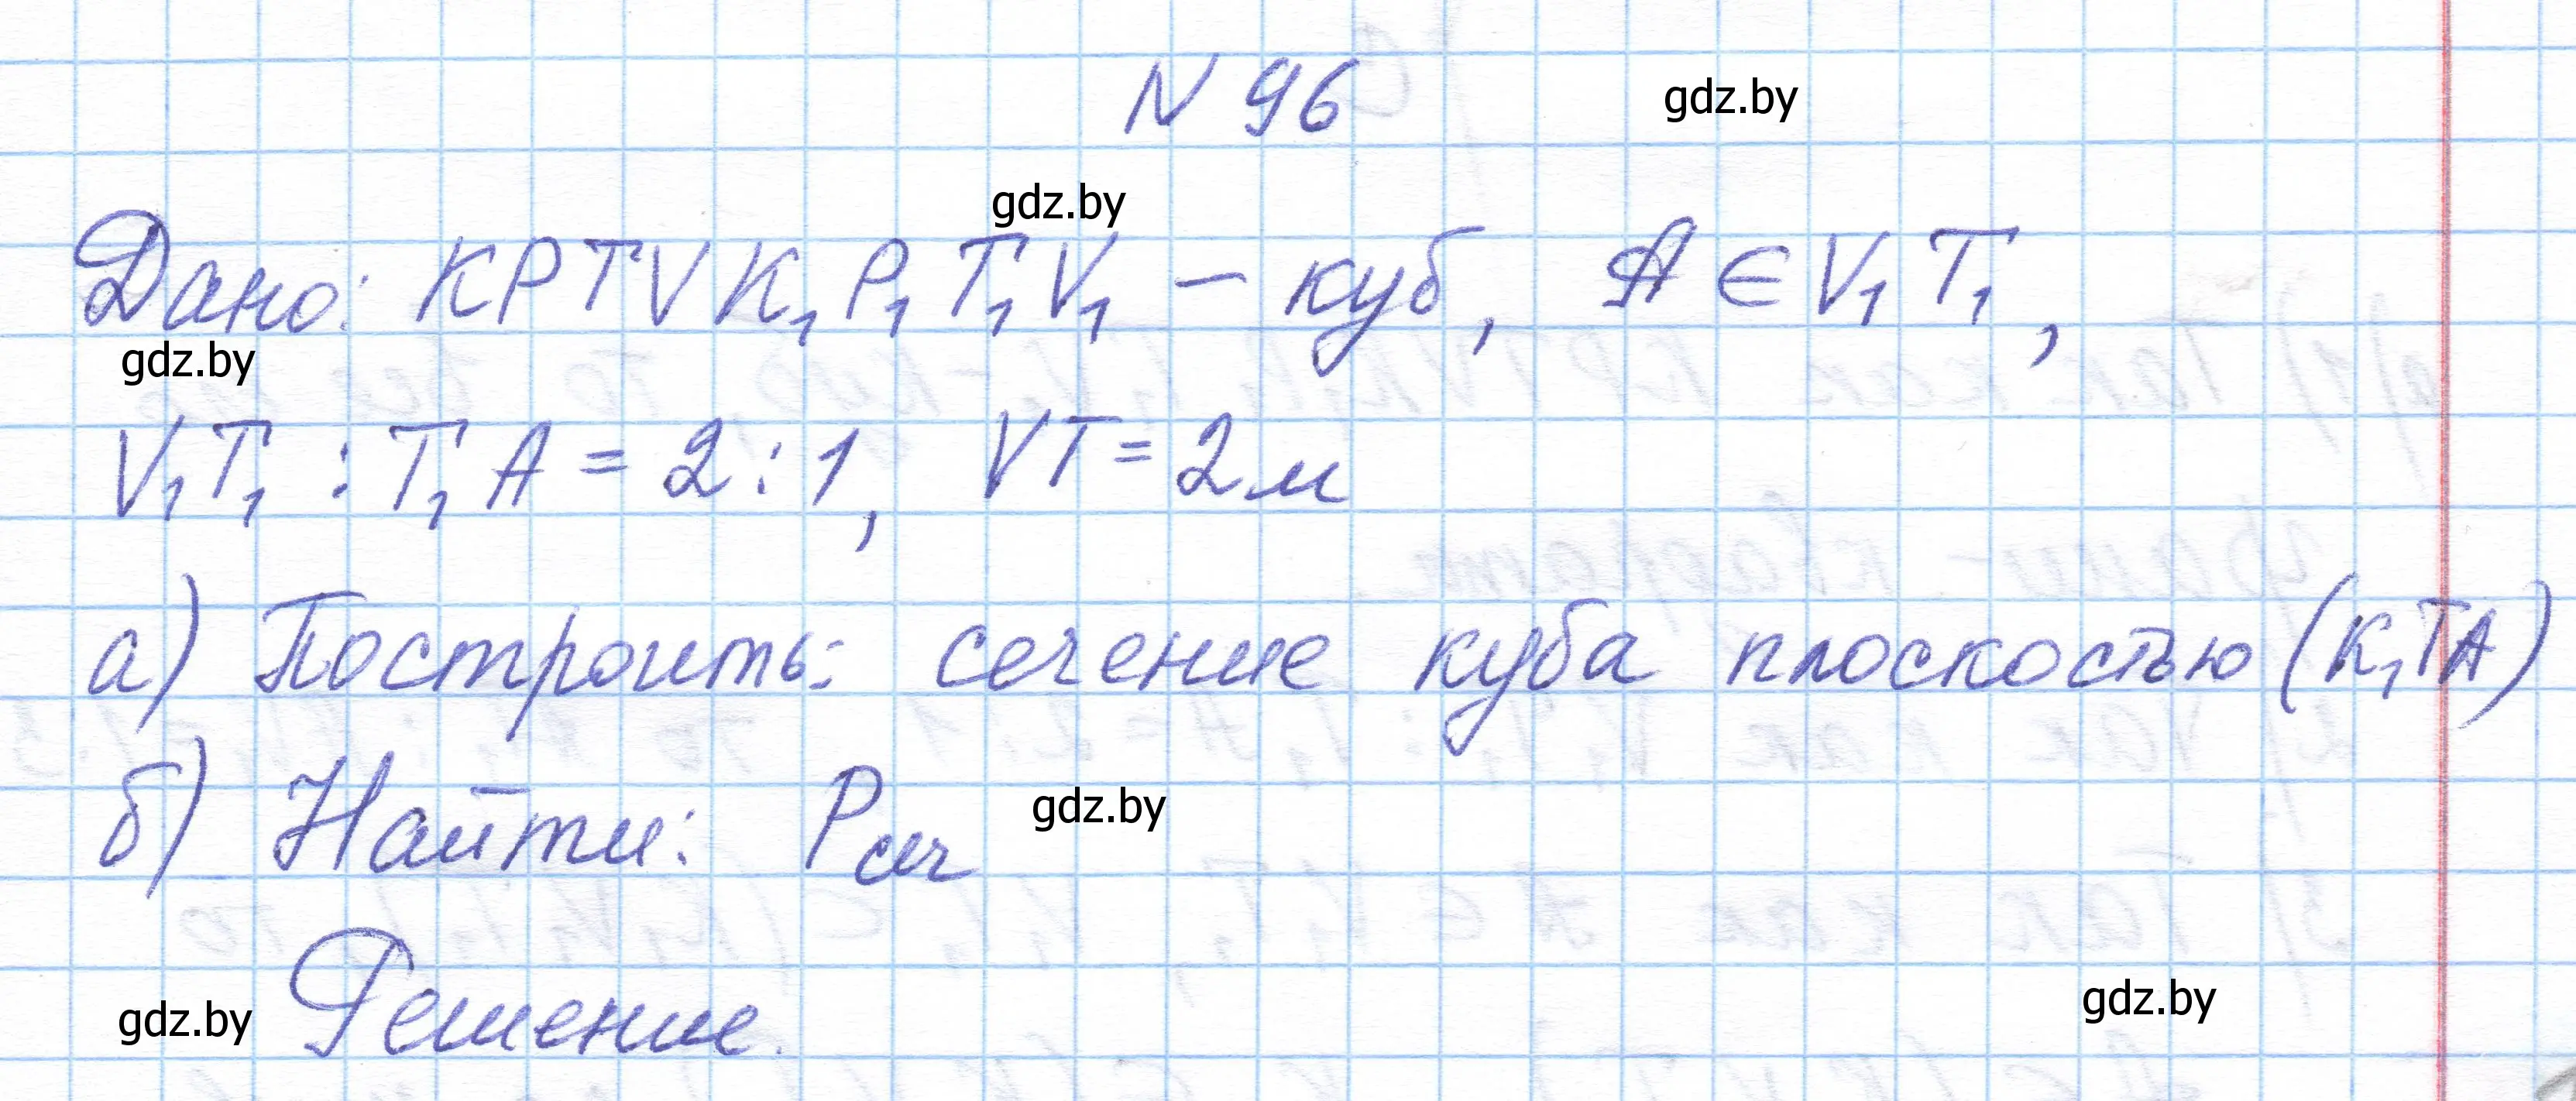 N 96
gdz.by
gdz.by
Дано: KPTVK₁P₁T₁V₁ – куб, A ∈ V₁T₁,
gdz.by
V₁T₁ : T₁A = 2 : 1, VT = 2м
а) Построить: сечение куба плоскостью (K₁TA)
б) Найти: Pсеч
gdz.by
gdz.by
Решение.
gdz.by